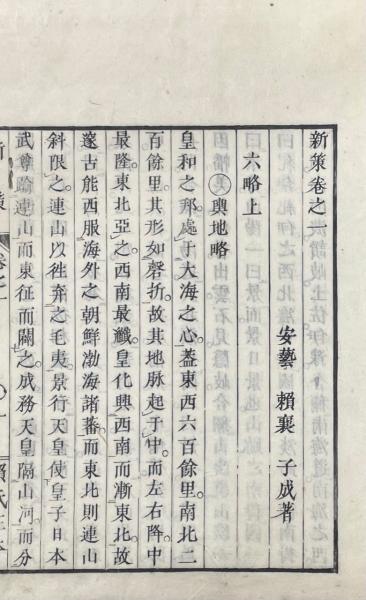 新策卷之一
安藝 賴襄 子成著
六略上
輿地略
皇和之邦。處于大海之心。蓋東西六百餘里。南北二
百餘里。其形如磬折。故其地脉起于中。而左右降。中
最隆。東北亞之。西南最纎。皇化興西南。而漸東北。故
邃古能西服海外之朝鮮渤海諸蕃。而東北則連山
斜限之。連山以徃。弃之毛夷。景行天皇使皇子日本
武尊踰連山而東征而闢之。成務天皇隔山河。而分
新策 卷之一 賴氏